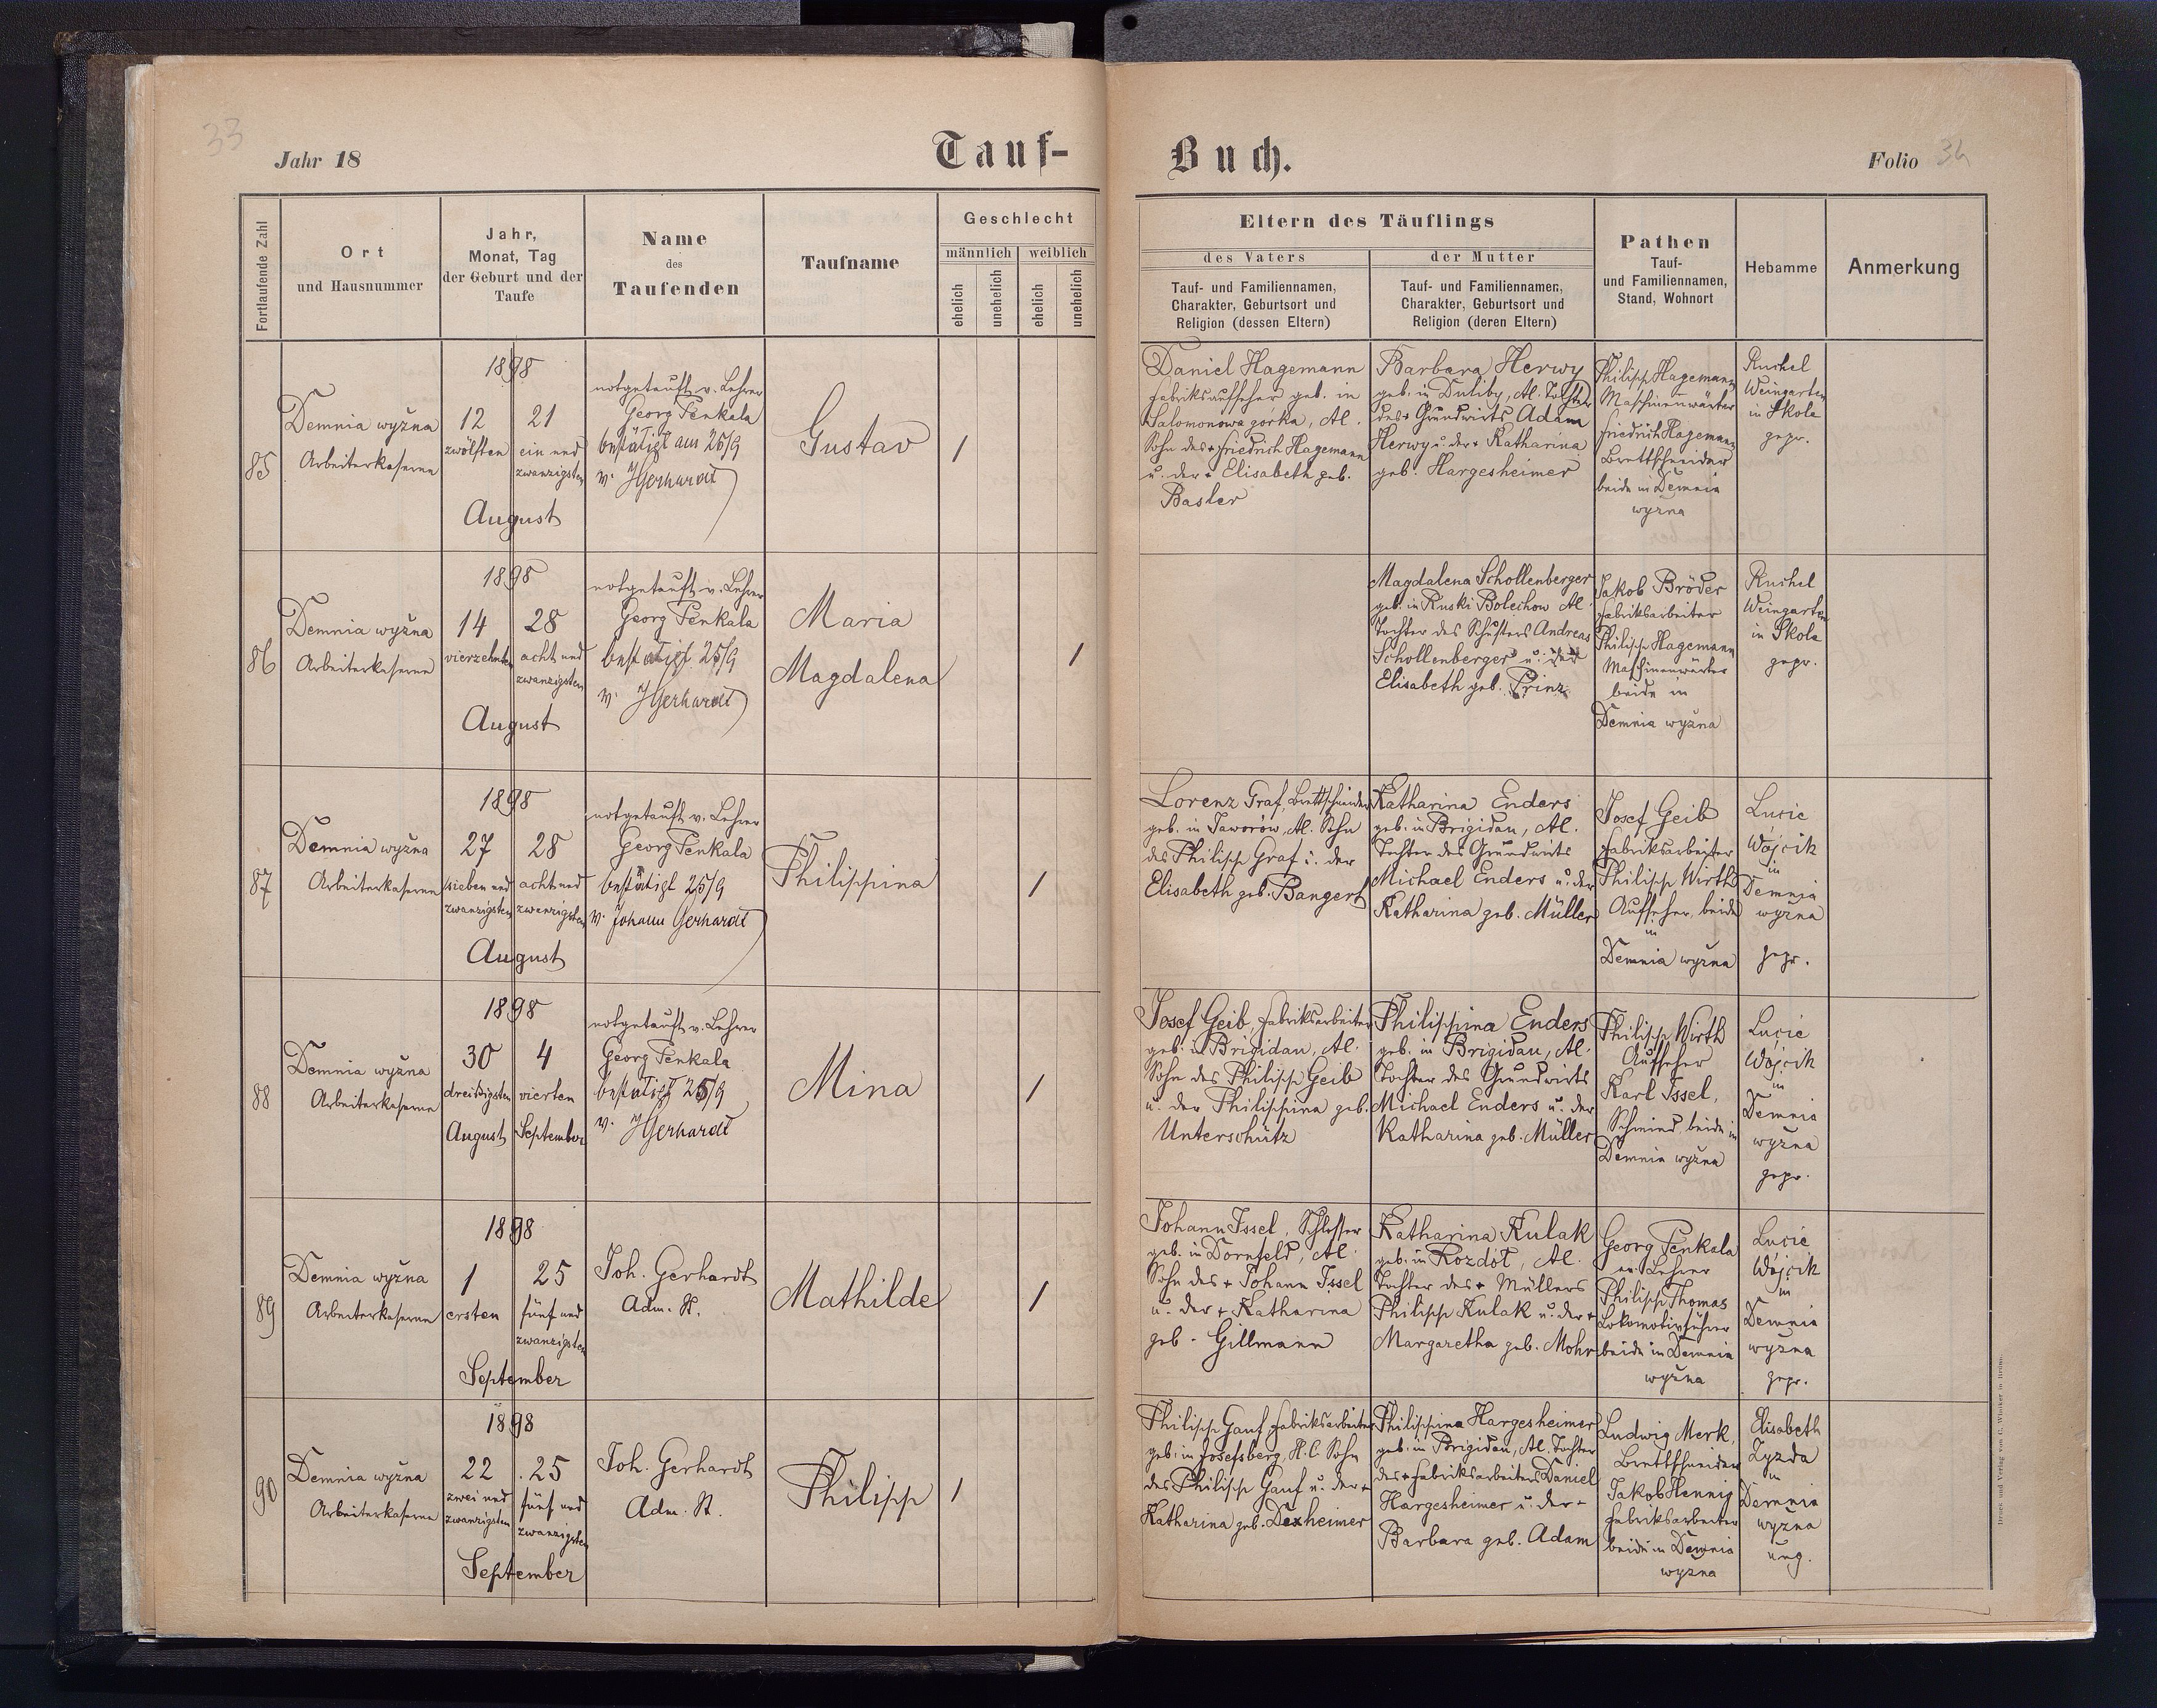 33
Jahr 18
Tauf-
Fortlaufende Zahl
Ort
und Hausnummer
Jahr,
Monat, Tag
der Geburt und der
Taufe
Name
des
Taufenden
Taufname
Geschlecht
männlich weiblich
ehelich
unehelich
ehelich
unehelich
85
Demnia wyżna
Arbeiterkaserne
1898
12 21
zwölften ein und
zwanzigsten
August
notgetauft v. Lehrer
Georg Penkala
bestätigt am 25/9
v. JGerhardt
Gustav
1
86
Demnia wyżna
Arbeiterkaserne
1898
14 28
vierzehnten acht und
zwanzigsten
August
notgetauft v. Lehrer
Georg Penkala
bestätigt 25/9
v. JGerhardt
Maria
Magdalena
1
87
Demnia wyżna
Arbeiterkaserne
1898
27 28
sieben und acht und
zwanzigsten zwanzigsten
August
notgetauft v. Lehrer
Georg Penkala
bestätigt 25/9
v. Johann Gerhardt
Philippina
1
88
Demnia wyżna
Arbeiterkaserne
1898
30 4
dreißigsten vierten
August September
notgetauft v. Lehrer
Georg Penkala
bestätigt 25/9
v. JGerhardt
Mina
1
89
Demnia wyżna
Arbeiterkaserne
1898
1 25
ersten fünf und
zwanzigsten
September
Joh. Gerhardt
Adm. St.
Mathilde
1
90
Demnia wyżna
Arbeiterkaserne
1898
22 25
zwei und fünf und
zwanzigsten zwanzigsten
September
Joh. Gerhardt
Adm. St.
Philipp
1
Buch.
Folio 34
Eltern des Täuflings
des Vaters
Tauf- und Familiennamen,
Charakter, Geburtsort und
Religion (dessen Eltern)
der Mutter
Tauf- und Familiennamen,
Charakter, Geburtsort und
Religion (deren Eltern)
Pathen
Tauf-
und Familiennamen,
Stand, Wohnort
Hebamme
Anmerkung
Daniel Hagemann
Fabriksaufseher geb. in
Salomonowa górka, AC.
Sohn des + Friedrich Hagemann
u. der + Elisabeth geb.
Basler
Barbara Herwy
geb. in Duliby, AC. Tochter
des + Grundwirts Adam
Herwy u. der + Katharina
geb. Hargesheimer
Philipp Hagemann
Maschinenwärter
Friedrich Hagemann
Brettschneider
beide in Demnia
wyżna
Ruchel
Weingarten
in Skole
gepr.
Magdalena Schollenberger
geb. in Ruski Bolechow AC
Tochter des Schusters Andreas
Schollenberger u. der
Elisabeth geb. Prinz
Jakob Bröder
Fabriksarbeiter
Philipp Hagemann
Maschinenwärter
beide in
Demnia wyżna
Ruchel
Weingarten
in Skole
gepr.
Lorenz Graf, Brettschneider
geb. in Jaworów, AC. Sohn
des Philipp Graf u. der
Elisabeth geb. Bangert
Katharina Enders
geb. in Brigidau, AC.
Tochter des Grundwirts
Michael Enders u. der
Katharina geb. Müller
Josef Geib
Fabriksarbeiter
Philipp Wirth
Aufseher, beide
in
Demnia wyżna
Lucie
Wójcik
in
Demnia
wyżna
gepr.
Josef Geib, Fabriksarbeiter
geb. in Brigidau, AC.
Sohn des Philipp Geib
u. der Philippina geb.
Unterschütz
Philippina Enders
geb. in Brigidau, AC.
Tochter des Grundwirts
Michael Enders u. der
Katharina geb. Müller
Philipp Wirth
Aufseher
Karl Issel,
Schmied, beide in
Demnia wyżna
Lucie
Wójcik
in
Demnia
wyżna
gepr.
Johann Issel, Schlosser
geb. in Dornfeld, AC.
Sohn des + Johann Issel
u. der + Katharina
geb. Gillmann
Katharina Kulak
geb. in Rozdół, AC.
Tochter des + Müllers
Philipp Kulak u. der +
Margaretha geb. Mohr
Georg Penkala
ev. Lehrer
Philipp Thomas
Lokomotivführer
beide in Demnia
wyżna
Lucie
Wójcik
in
Demnia
wyżna
gepr.
Philipp Gauf Fabriksarbeiter
geb. in Josefsberg, H.C. Sohn
des Philipp Gauf u. der +
Katharina geb. Dexheimer
Philippina Hargesheimer
geb. in Brigidau, AC. Tochter
des + Fabriksarbeiters Daniel
Hargesheimer u. der +
Barbara geb. Adam
Ludwig Merk,
Brettschneider
Jakob Hennig
Fabriksarbeiter
beide in Demnia
wyżna
Elisabeth
Zyzda
in
Demnia
wyżna
ung.
Druck und Verlag von C. Winiker in Brünn.